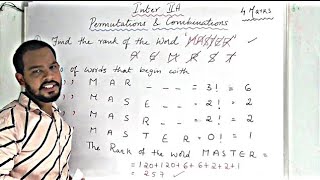 Inter IIA
4 Marks
Permutations & Combinations
Find the rank of the Word MASTER
A E M R S T
of words that begin with
M A R _ _ _ = 3! = 6
M A S E _ _ = 2! = 2
M A S R _ _ = 2! = 2
M A S T E R = 0! = 1
The Rank of the word MASTER =
= 120+120+6+6+2+2+1
= 257